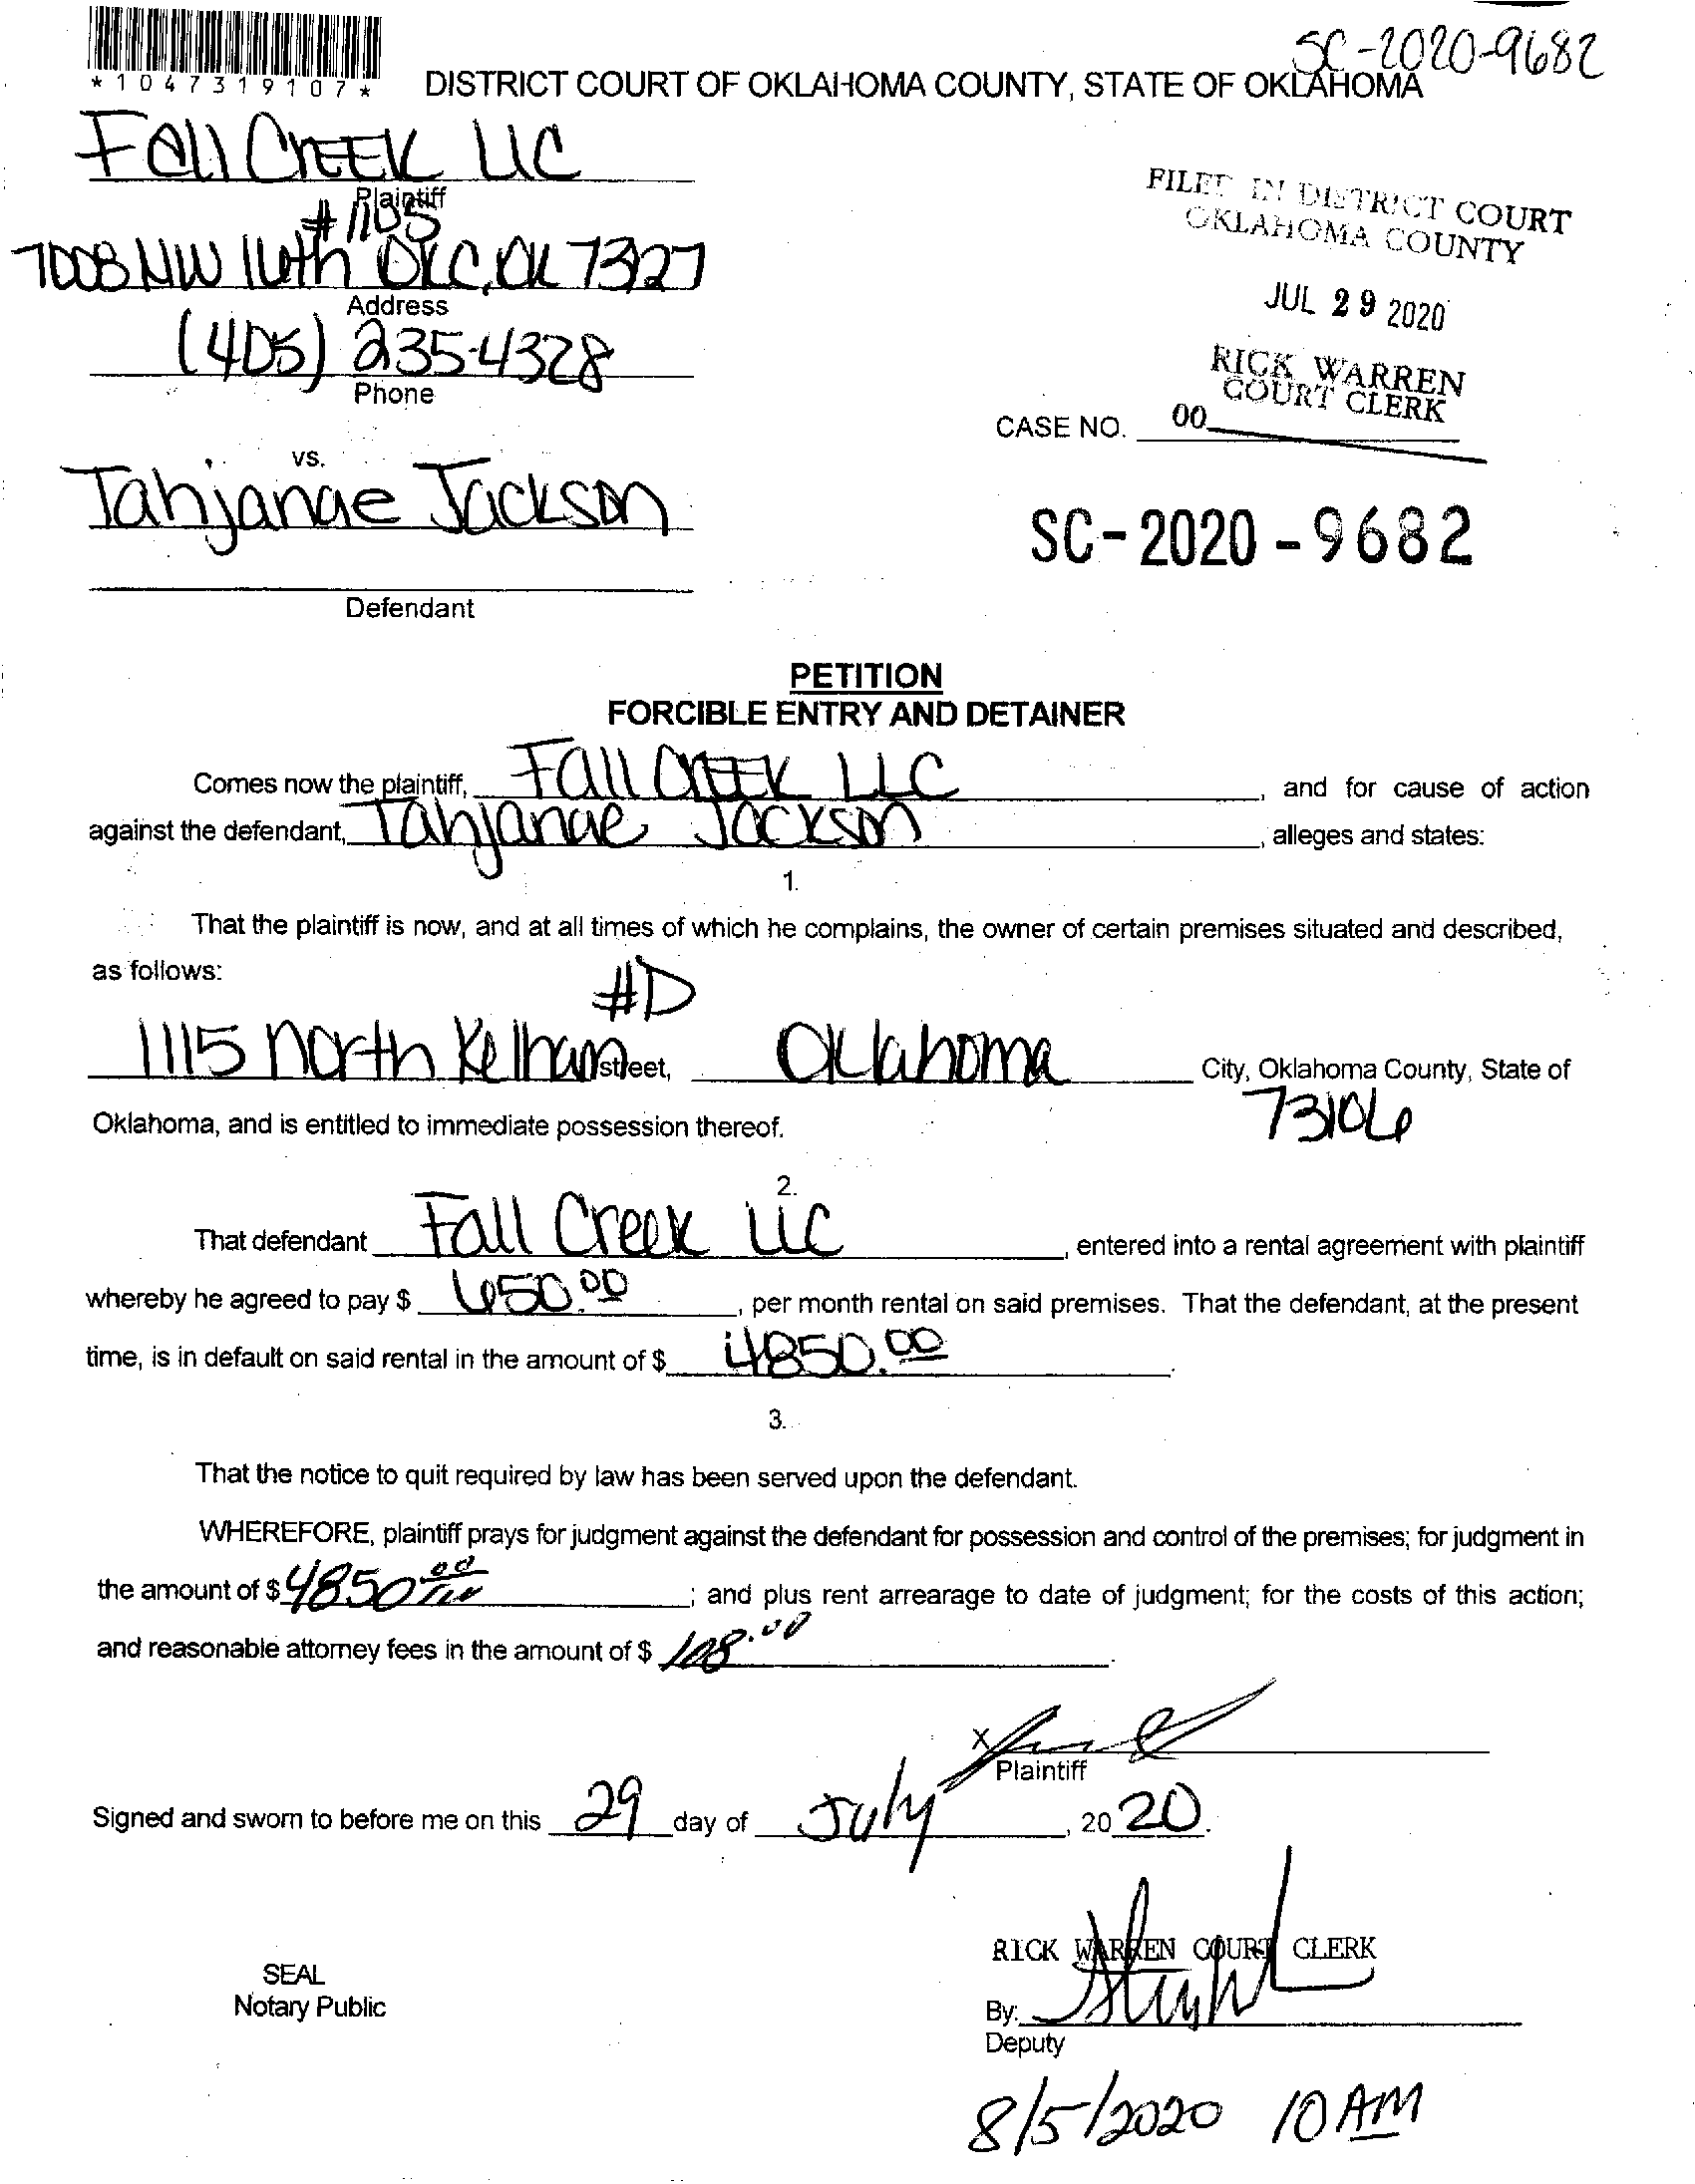 SC-2020-9682
*1047319107*
DISTRICT COURT OF OKLAHOMA COUNTY, STATE OF OKLAHOMA
Fall Creek LLC
Plaintiff
#1105
7008 NW 16th OKC, OK 73127
Address
(405) 235-4328
Phone
FILED IN DISTRICT COURT
OKLAHOMA COUNTY
JUL 29 2020
RICK WARREN
COURT CLERK
CASE NO. 00
vs.
Tahjanae Jackson
SC-2020-9682
Defendant
PETITION
FORCIBLE ENTRY AND DETAINER
Comes now the plaintiff, Fall Creek LLC, and for cause of action
against the defendant, Tahjanae Jackson, alleges and states:
1.
That the plaintiff is now, and at all times of which he complains, the owner of certain premises situated and described,
as follows:
#D
1115 North Kelham street, Oklahoma City, Oklahoma County, State of
73106
Oklahoma, and is entitled to immediate possession thereof.
2.
That defendant Fall Creek LLC, entered into a rental agreement with plaintiff
whereby he agreed to pay $ 650.00, per month rental on said premises. That the defendant, at the present
time, is in default on said rental in the amount of $ 4850.00.
3.
That the notice to quit required by law has been served upon the defendant.
WHEREFORE, plaintiff prays for judgment against the defendant for possession and control of the premises; for judgment in
the amount of $ 4850 00; and plus rent arrearage to date of judgment; for the costs of this action;
and reasonable attorney fees in the amount of $ .00.
X
Plaintiff
Signed and sworn to before me on this 29 day of July, 2020.
RICK WARREN COURT CLERK
SEAL
Notary Public
By:
Deputy
8/5/2020 10 AM